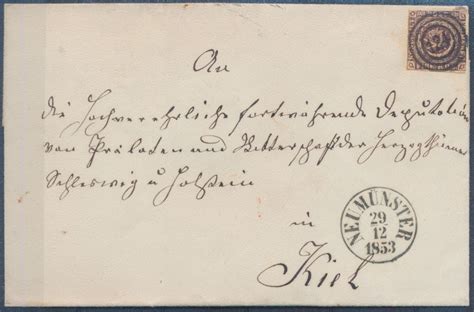 An
die Hochverehrliche fortwährende Deputation
von Prälaten und Ritterschaft der Herzogthümer
Schleswig u Holstein
in
Kiel
NEUMÜNSTER
29
12
1853